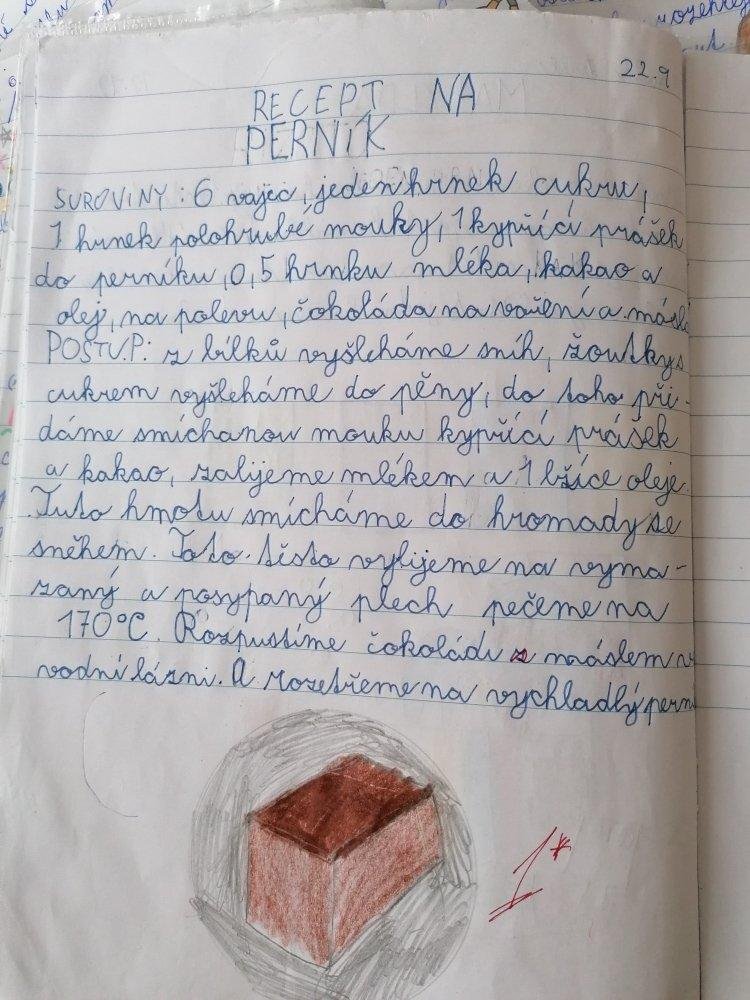 22.9
RECEPT NA
PERNÍK
SUROVINY: 6 vajec, jeden hrnek cukru,
1 hrnek polohrubé mouky, 1 kypřící prášek
do perníku, 0,5 hrnku mléka, kakao a
olej, na polevu, čokoláda na vaření a másl
POSTUP: z bílků vyšleháme sníh, žoutky s
cukrem vyšleháme do pěny, do toho při-
dáme smíchanou mouku kypřící prášek
a kakao, zalijeme mlékem a 1 lžíce oleje.
Tuto hmotu smícháme do hromady se
sněhem. Toto těsto vylijeme na vyma-
zaný a posypaný plech pečeme na
170°C. Rozpustíme čokoládu s máslem v
vodní lázni. A rozetřeme na vychladlý pern
1*